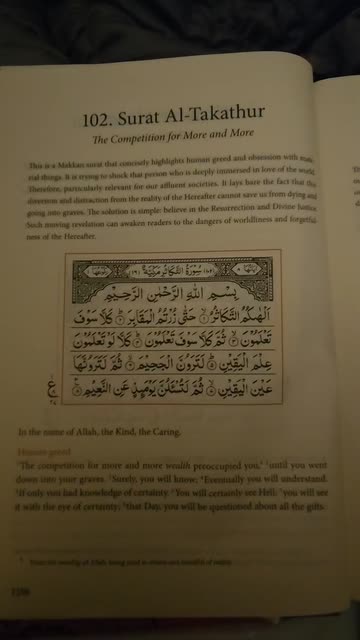 102. Surat Al-Takathur
The Competition for More and More
This is a Makkan surat that concisely highlights human greed and obsession with mate-
rial things. It is trying to shock that person who is deeply immersed in love of the world.
Therefore, particularly relevant for our affluent societies. It lays bare the fact that this
diversion and distraction from the reality of the Hereafter cannot save us from dying and
going into graves. The solution is simple: believe in the Resurrection and Divine Justice.
Such moving revelation can awaken readers to the dangers of worldliness and forgetful-
ness of the Hereafter.
سورة التكاثر مكية
بِسْمِ اللَّهِ الرَّحْمَٰنِ الرَّحِيمِ
أَلْهَاكُمُ التَّكَاثُرُ ١ حَتَّىٰ زُرْتُمُ الْمَقَابِرَ ٢ كَلَّا سَوْفَ
تَعْلَمُونَ ٣ ثُمَّ كَلَّا سَوْفَ تَعْلَمُونَ ٤ كَلَّا لَوْ تَعْلَمُونَ
عِلْمَ الْيَقِينِ ٥ لَتَرَوُنَّ الْجَحِيمَ ٦ ثُمَّ لَتَرَوُنَّهَا
عَيْنَ الْيَقِينِ ٧ ثُمَّ لَتُسْأَلُنَّ يَوْمَئِذٍ عَنِ النَّعِيمِ ٨
In the name of Allah, the Kind, the Caring.
Human greed
¹The competition for more and more wealth preoccupied you,* ²until you went
down into your graves. ³Surely, you will know; ⁴Eventually you will understand.
⁵If only you had knowledge of certainty. ⁶You will certainly see Hell; ⁷you will see
it with the eye of certainty; ⁸that Day, you will be questioned about all the gifts.